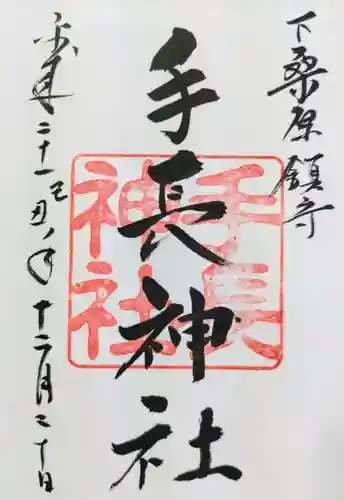 下桑原鎮守
手長神社
手長神社
平成二十一己丑ノ年十二月二十日